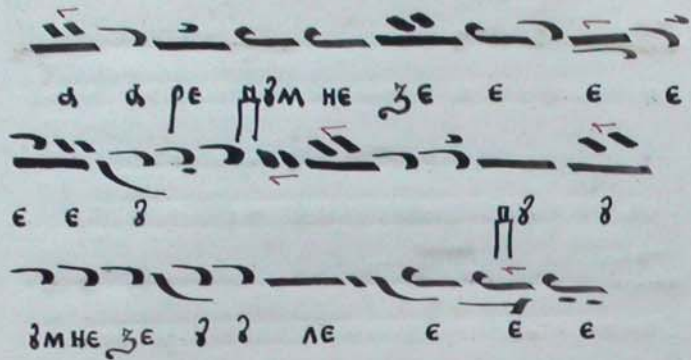 а а ре дꙋм не ѕе е е е
е е ꙋ дꙋ ꙋ
ꙋм не ѕе ꙋ ꙋ ле е е е